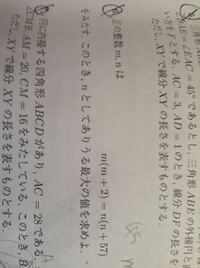 ∠BAE = ∠FAC = 45° であるとし,三角形 ABE の外接円と
い方を F とする.AC = 3, AD = 1 のとき,線分 DF の長さを
ただし,XY で線分 XY の長さを表すものとする.
正の整数 m, n は
m(m + 2) = n(n + 57)
をみたす.このとき,n としてありうる最大の値を求めよ.
円に内接する四角形 ABCD があり,AC = 28 である
∠CMB, AM = 20, CM = 16 をみたしている.このとき,B
ただし,XY で線分 XY の長さを表すものとする.